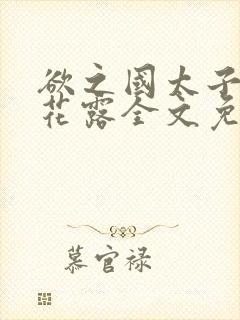 欲之國太子
花露全文免
慕官禄